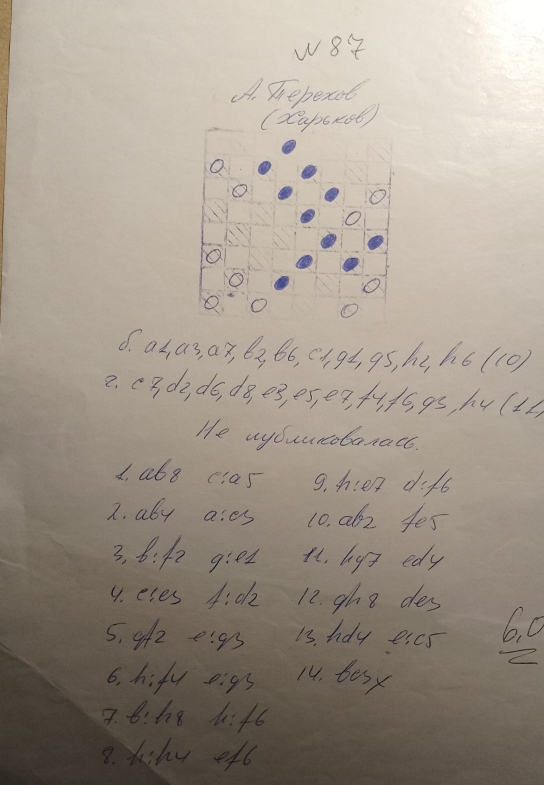 № 87
А. Терехов
(Харьков)
б. a1, a3, a7, b2, b6, c1, g1, g5, h2, h6 (10)
ч. c7, d2, d6, d8, e3, e5, e7, f4, f6, g3, h4 (11)
Не публиковалась.
1. ab8 c:a5
2. ab4 a:c3
3. b:f2 g:e1
4. c:e3 f:d2
5. gf2 e:g3
6. h:f4 e:g3
7. b:h8 h:f6
8. h:h4 ef6
9. h:e7 d:f6
10. ab2 fe5
11. hg7 ed4
12. gh8 de3
13. hd4 e:c5
14. bc3x
6,0